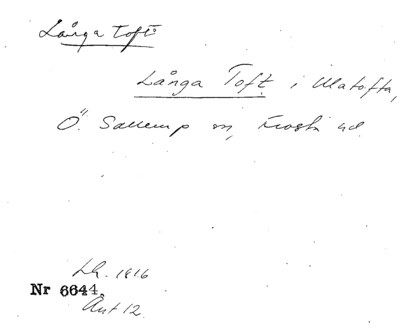 Långa Toft
Långa Toft i Matofta,
Ö. Sallerup sn, Frosta hd.
Lh. 1816
Nr 6644.
Akt 12.